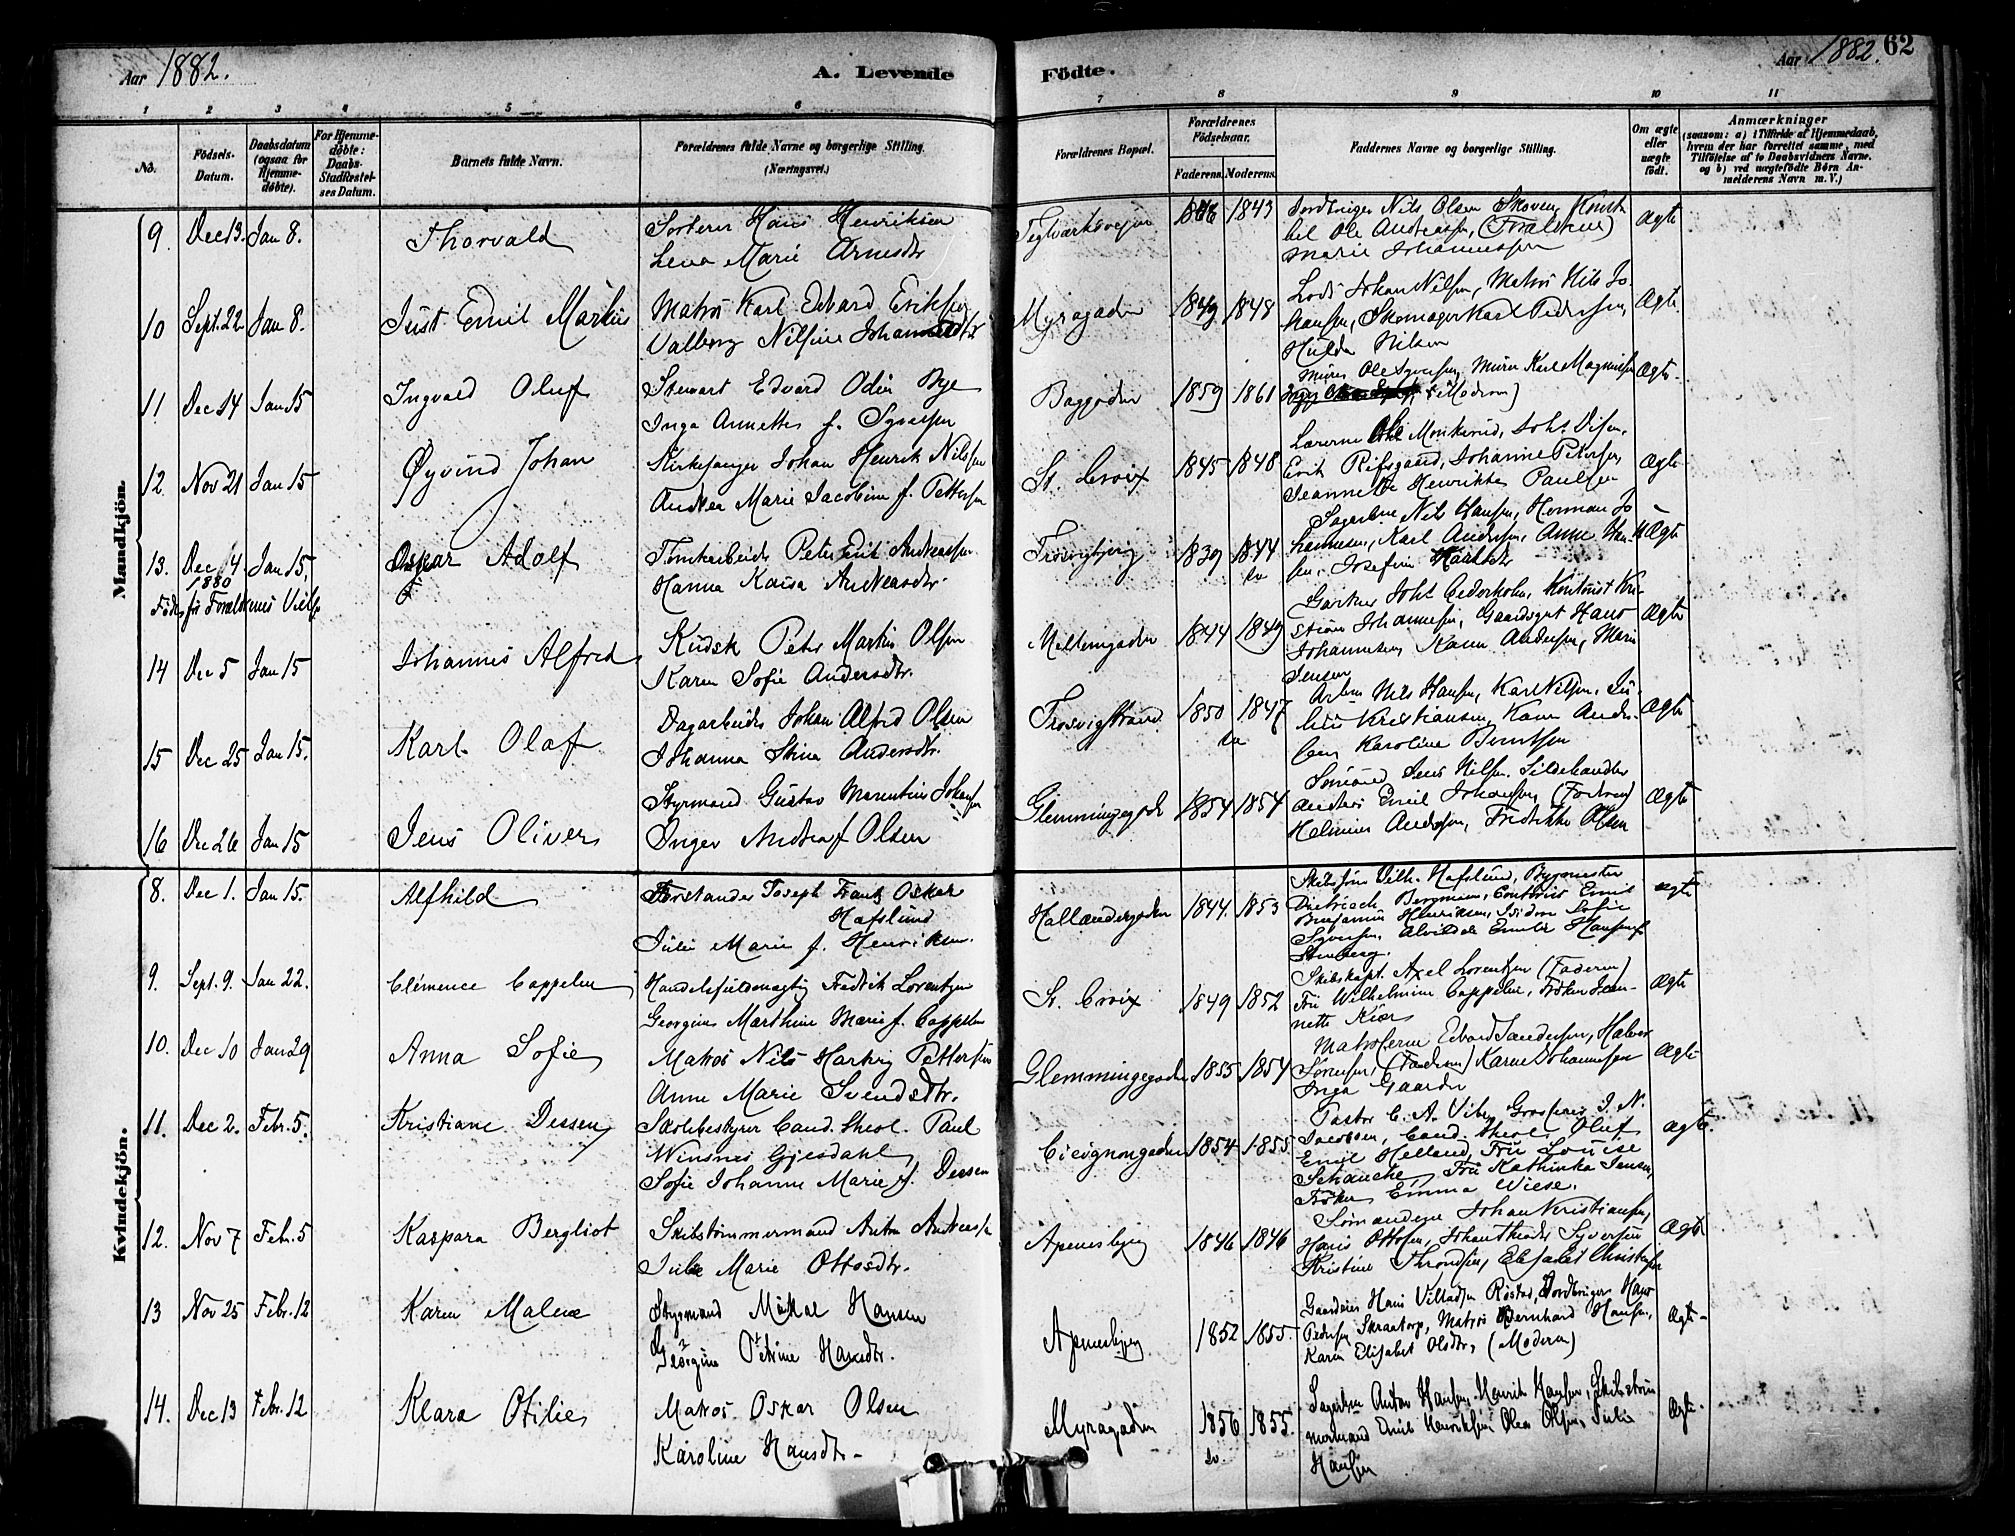 Aar 1882.
A. Levende
Födte.
Aar 1882. 62
1 2 3 4 5 6 7 8 9 10 11
No.
Födsels-Datum.
Daabsdatum (ogsaa for Hjemme-döbte).
For Hjemme-döbte: Daabs-Stadfæstel-ses Datum.
Barnets fulde Navn.
Forældrenes fulde Navne og borgerlige Stilling. (Næringsvei.)
Forældrenes Bopæl.
Forældrenes Födselsaar.
Faderens. Moderens.
Faddernes Navne og borgerlige Stilling.
Om ægte eller uægte födt.
Anmærkninger
(saasom: a) i Tilfælde af Hjemmedaab, hvem der har forrettet samme, med Tilföielse af to Daabsvidners Navne, og b) ved uægtefödte Börn An-melderens Navn m. V.)
Mandkjön.
9. Dec 13. Jan 8. Thorvald
Hans Henriksen
Lena Marie Arnesdtr
1843
Nils Olsen
Ole Andreassen, (Forældrene)
Marie Johannessen
Ægte
10 Sept. 22 Jan 8. Just Emil Markus
Matros Karl Edvard Eriksen
Valborg Nilsine
Myragaden 1849 1848
Johan Nilsen, Matros Nils Jo-
hansen, Skomager Karl Pedersen,
Hulda Nilsen
Ægte
11 Dec 14 Jan 15 Ingvald Oluf
Stewart Edvard Odin Bye
Inga Annette f. Syversen
Baggaden 1859 1861
Murer Ole Syversen, Murer Karl Magnussen
(Moderen)
Ægte
12. Nov 21 Jan 15 Øyvind Johan
Kirkesanger Johan Henrik Nilssen
Andrea Marie Jacobine f. Pettersen
St. Croix 1845 1848
Lærerne
Erik Riisgaard, Johanne Petersen,
Jeannette Henrikke Paulsen
Ægte
13. Dec 4. 1880 Jan 15, Oskar Adolf
Hanna Kaisa Andreasdtr.
1839 1844
Nils Hansen, Herman Jo-
hannesen, Karl Andersen, Anne Han-
sen, Josefine
Ægte
Født før Forældrenes Vielse
14 Dec 5 Jan 15 Johannes Alfred
Kudsk Peter Martin Olsen
Karen Sofie Andersdtr.
Mellemgaden 1844 1849
Gartner Johs Cederholm, Kontorist Kri-
stian Johannesen, Gaardsgut Hans
Johannesen, Karen Andersen, Marie
Jensen
Ægte
15 Dec 25 Jan 15. Karl Olaf
Dagarbeider Johan Alfred Olsen
Johanna Stina Andersdtr.
Trosvigstrand 1850 1847
Nils Hansen, Karl Nilsen, Ju-
lius Kristiansen, Karen Ander-
sen, Karoline Berntsen
Ægte
16 Dec 26 Jan 15 Jens Oliver
Styrmand Gustav Marentius Johansen
Inger Andrea f Olsen
Glemmingegade 1854 1854
Sømand Jens Nilsen, Sildehandler
Anders Emil Johansen, (Faderen)
Helmine Andersen, Fredrikke Olsen
Ægte
Kvindekjön.
8. Dec 1. Jan 15. Alfhild
Forstander Joseph Frantz Oskar
Hafslund
Julie Marie f. Henriksen.
Hollændergaden 1844. 1853
Vilh. Hafslund, Bygmester
Diebrisch Bergmann, Contorist Emil
Benjamin Henriksen, Isidora Sofie
Syversen, Alvilde Emilie Hansen f
Stenberg.
ægte
9. Sept. 9. Jan 22. Clémence Cappelen
Handelsfuldmægtig Fredrik Lorentzen
Georgine Marthine Marie f. Cappelen
St. Croix 1849 1852
Skibskapt. Axel Lorentzen (Faderen)
Fru Wilhelmine Cappelen, Frøken Jean-
nette Kiær
Ægte
10. Dec 10 Jan 29 Anna Sofie
Matros Nils Hartvig Pettersen
Anne Marie Svendsdtr.
Glemmingegaden 1855 1854
Matroserne Edvard Sandersen, Halvor
Sørensen, (Faderen) Karen Johannesen
Inga Gaarder
Ægte
11. Dec 2. Febr. 5. Kristiane Dessen
Skolebestyrer Cand. theol. Paul
Winsnes Gjesdahl
Sofie Johanne Marie f. Dessen
Cicignongaden 1854 1855.
Pastor C. A. Vibe, Grosserer J. N.
Jacobsen, Cand. theol. Oluf
Emil Helland, Fru Louise
Schancke, Fru Kathinka Jensen,
Frøken Emma Wiese.
Ægte.
12. Nov 7 Febr. 5 Kaspara Bergliot
Skibstømmermand Anton Andreassen
Julie Marie Ottosdtr.
Apenesbjerg 1846 1846
Sømændene Johan Kristiansen,
Hans Ottosen, Johan Theodor Syversen
Kristine Throndsen, Elisabet Christensen
Ægte.
13 Nov 25 Febr. 12 Karen Malene
Styrmand Mikal Hansen
Georgine Petrine Hansdtr.
Apenesbjerg 1852 1855.
Gaardeier Hans Villadsen Røstad, Jordbruger Hans
Pedersen Skraatorp, Matros Bernhard Hansen,
Karen Elisabet Olsdtr, (Moderen)
Ægte
14. Dec 13 Febr. 12 Klara Otilie
Matros Oskar Olsen
Karoline Hansdtr
Myragaden 1856 1855.
Anton Hansen, Henrik Hansen, Skibstøm-
mermand Emil Henriksen, Olea Olsen, Julie
Hansen
Ægte.